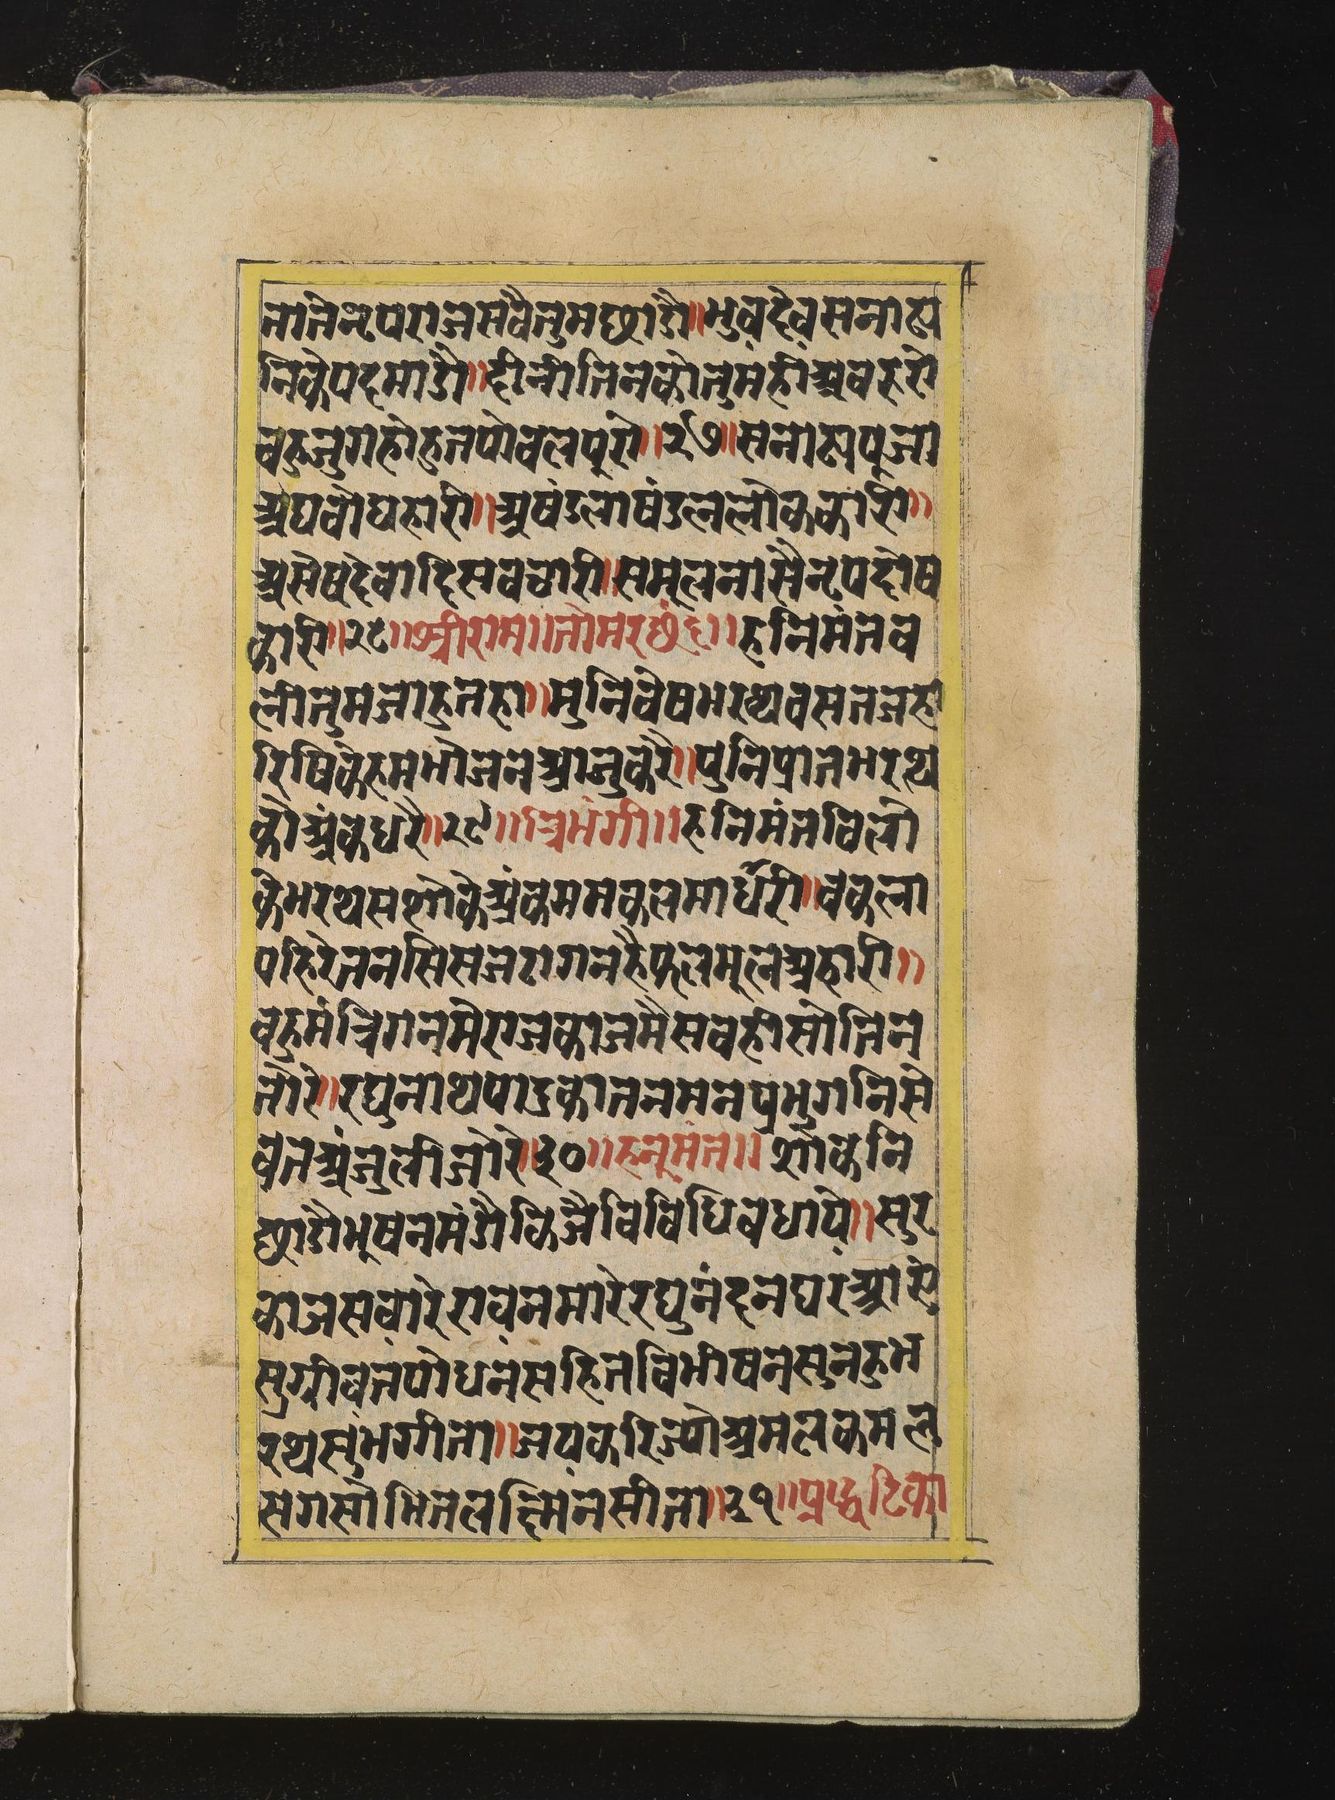 तातेनृपराजसवैतुमछाडौ॥भुवदेवसनाढ्य
निकेपदमाडौ॥दीनीतिनकोतुमहीअवरुरो
वहुजुगहोहुतपोवलपूरो॥२७॥सनाढ्यपूजा
अघवोघहारी॥अषंडलाषंडललोककारी॥
असेषदेवादिसवचारी॥समूलनासैनृपदोष
कारी॥२८॥श्रीराम॥तोमरछंद॥हनिमंतव
लीतुमजाहुतहा॥मुनिवेषभरथवसतजहा
रिषिकेहमभोजनआजुकरै॥पुनिप्रातभरथ
कोअंकधरै॥२९॥त्रिभंगी॥हनिमंतविलो
केभरथसशोकेअंकममकलमाधेरी॥वकला
पहिरेतनसिसजटागनहैफलमूलअहारी॥
वहुमंत्रिगनमेराजकाजमैसवहीसोतिन
तोरे॥रघुनाथपाडकातनमनप्रभुगनिसे
वतअंजुलीजोरे॥३०॥हनूमंत॥शोकनि
छाडौभूषनमंडौकिजैविविधिवधाये॥सुर
काजसवारेरावनमारेरघुनंदनघरआऐ
सुग्रीवतपोधनसहितविभीषनसुनहुभ
रथसुभगीता॥जयकरिज्योअमलकमल
सगसोभितलछिमनसीता॥३१॥प्रद्धटिका